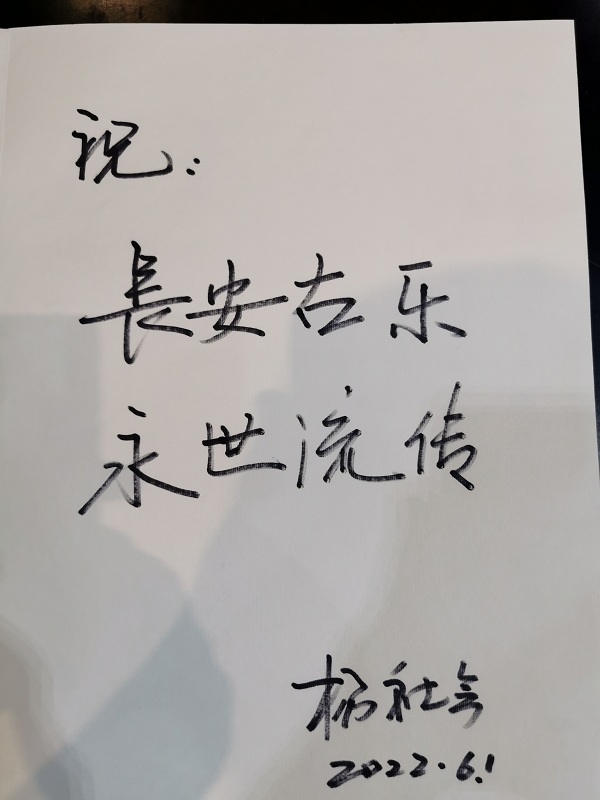 祝:
長安古乐
永世流传
杨社会
2022.6.1